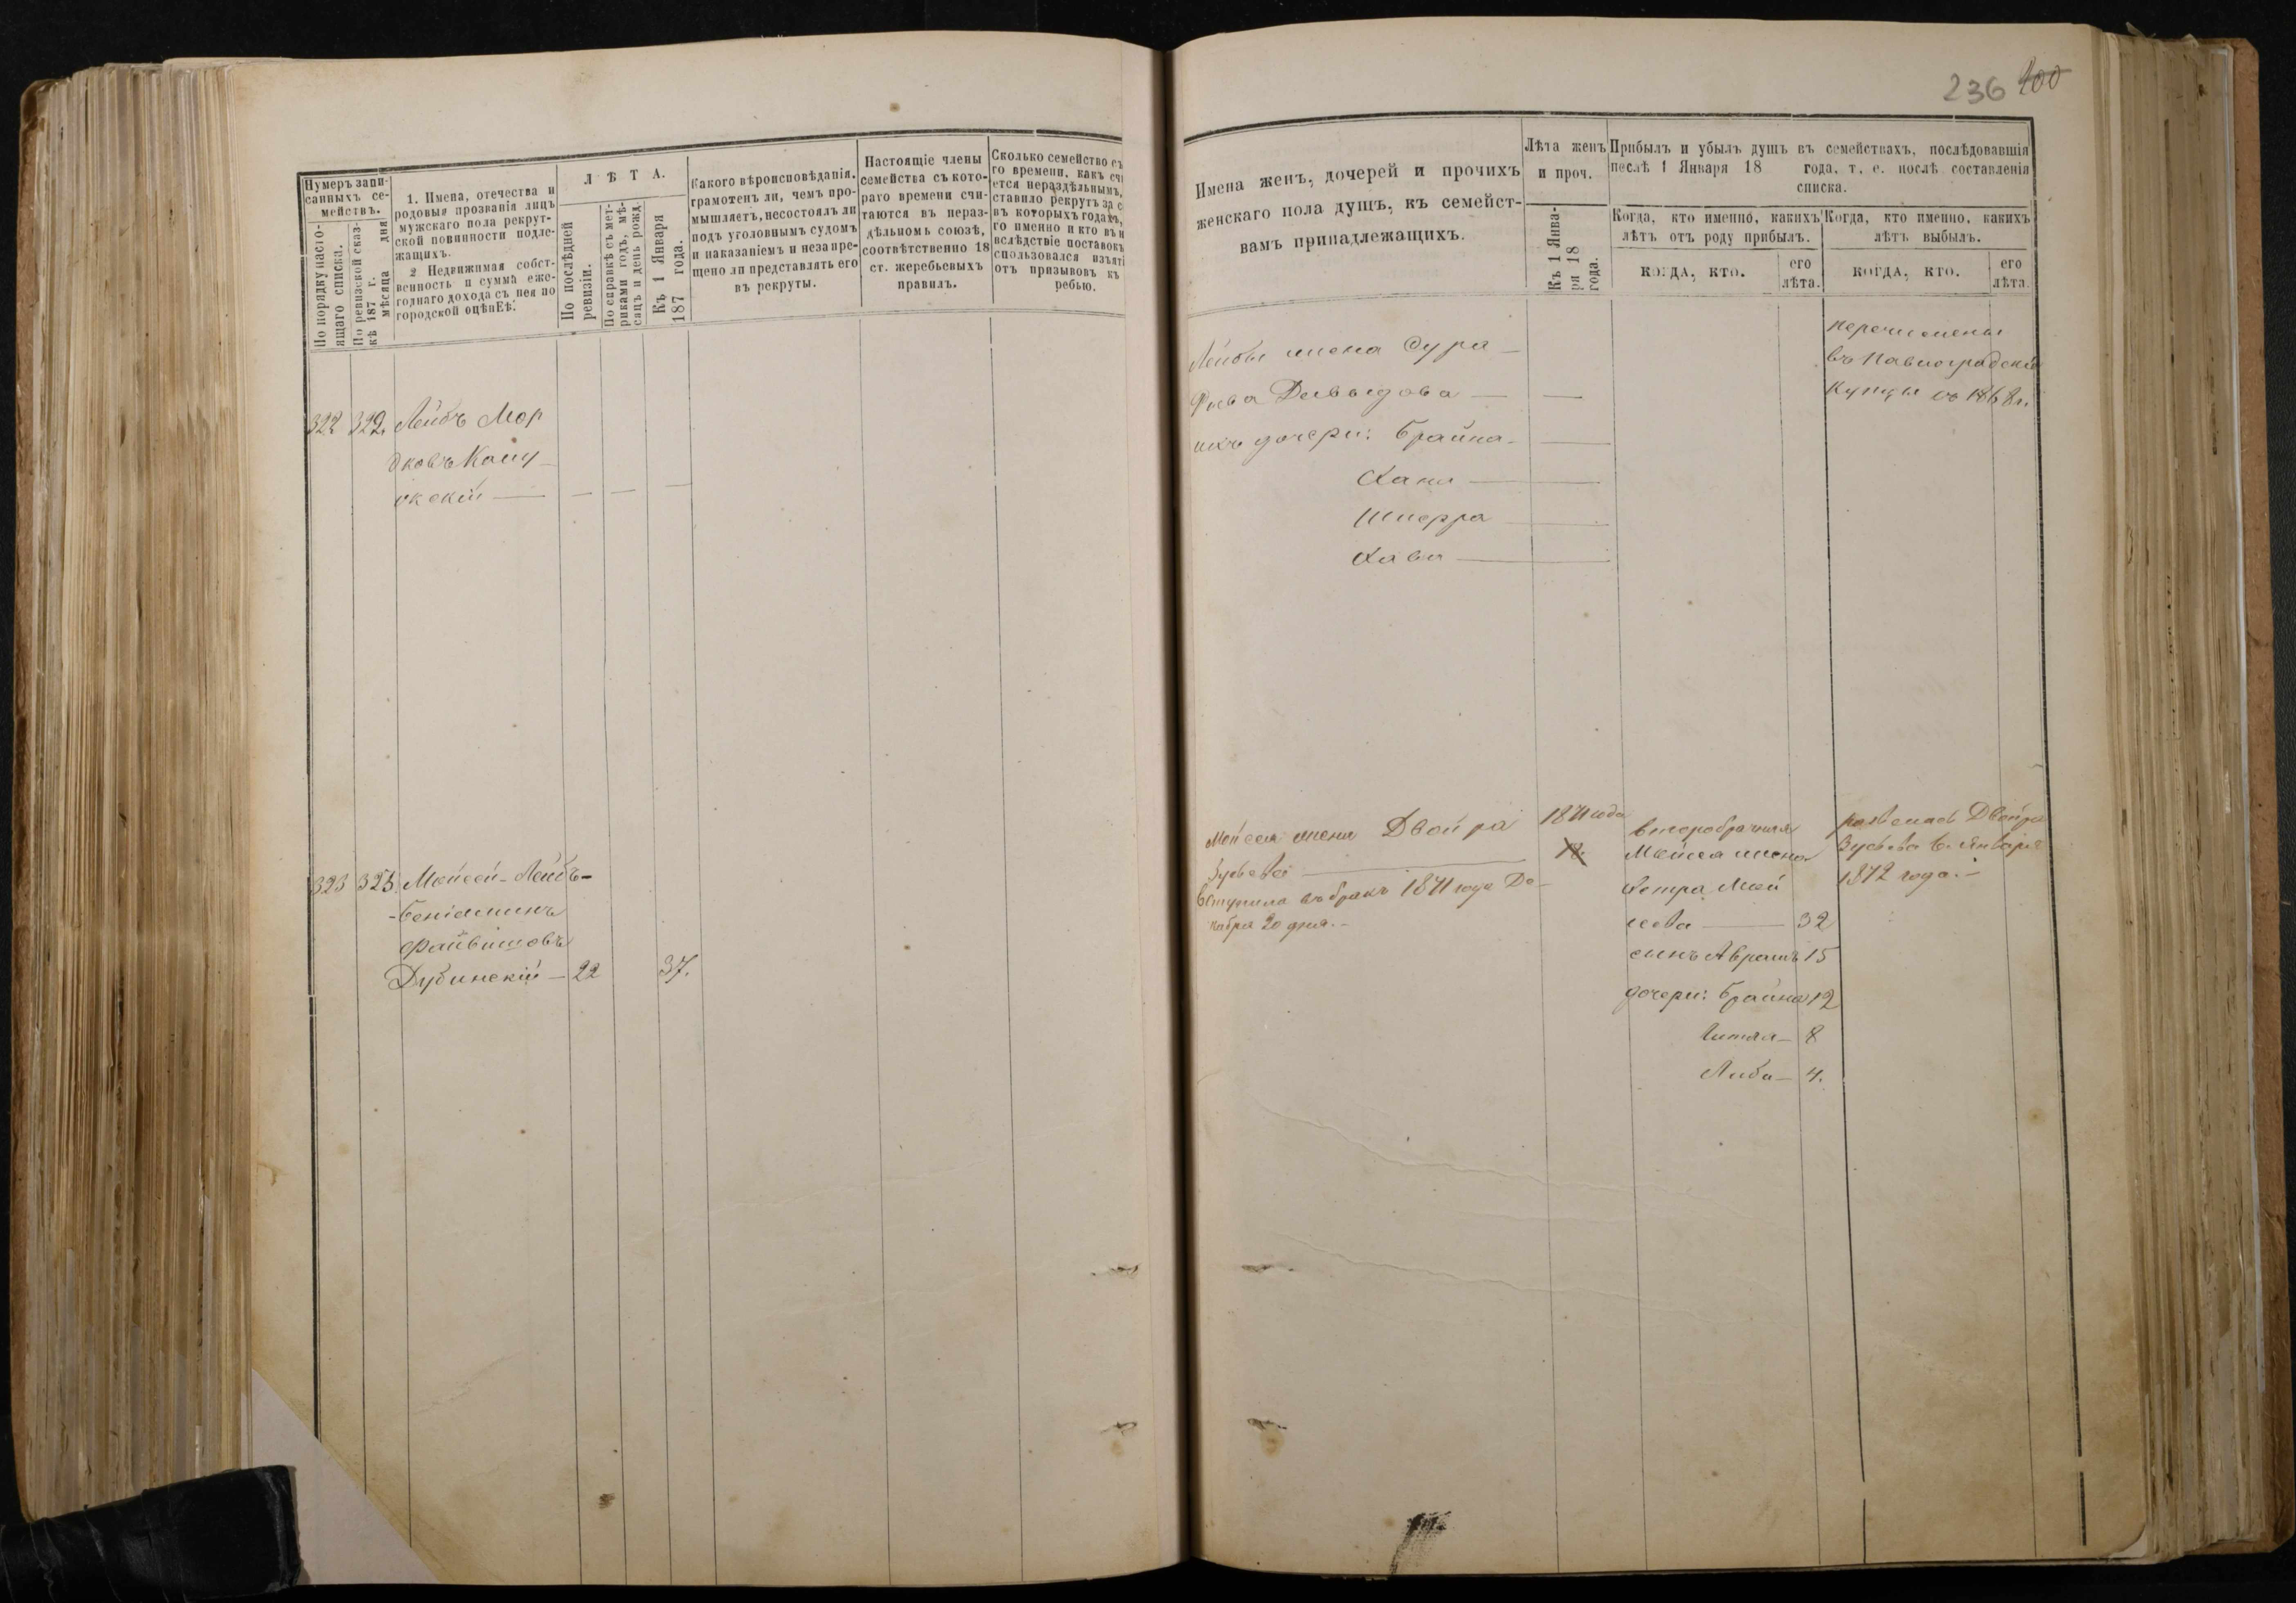 236 400
Нумеръ запи-
санныхъ се-
мействъ.
По порядку насто-
ящаго списка.
По ревизской сказ-
кѣ 187 г.
мѣсяца дня
1. Имена, отечества и
родовыя прозванія лицъ
мужскаго пола рекрут-
ской повинности подле-
жащихъ.
2 Недвижимая собст-
венность и сумма еже-
годнаго дохода съ нея по
городской оцѣнкѣ.
ЛѢТА.
По послѣдней
ревизіи.
По справкѣ съ мет-
риками годъ, мѣ-
сяцъ и день рожд.
Къ 1 Января
187 года.
Какого вѣроисповѣданія.
грамотенъ ли, чемъ про-
мышляетъ, несостоялъ ли
подъ уголовнымъ судомъ
и наказаніемъ и незапре-
щено ли представлять его
въ рекруты.
Настоящіе члены
семейства съ кото-
раго времени счи-
таются въ нераз-
дѣльномъ союзѣ,
соотвѣтственно 18
ст. жеребьевыхъ
правилъ.
Сколько семейство съ
го времени, какъ счи
ется нераздѣльнымъ,
ставило рекрутъ за с
въ которыхъ годахъ,
го именно и кто въ н
вслѣдствіе поставокъ
спользовался изъяті
отъ призывовъ къ
ребью.
322 322. Лейбъ Мор
дковъ
скій
323 323. Мойсей-Лейбъ-
-Беніаминъ
Файвишовъ
Дубинскій — 22 37.
Имена женъ, дочерей и прочихъ
женскаго пола душъ, къ семейст-
вамъ принадлежащихъ.
Лѣта женъ
и проч.
Къ 1 Янва-
ря 18
года.
Прибылъ и убылъ душъ въ семействахъ, послѣдовавшія
послѣ 1 Января 18 года, т. е. послѣ составленія
списка.
Когда, кто именно, какихъ
лѣтъ отъ роду прибылъ.
КОГДА, КТО.
его
лѣта.
Когда, кто именно, какихъ
лѣтъ выбылъ.
КОГДА, КТО.
его
лѣта.
Лейбы жена Сура —
Рива Давыдова —
ихъ дочери: Брайна —
Хана —
Шперра —
Хава —
перечислены
въ Павлоградскіе
Купцы въ 1868 г.
Мойсея жена Двойра
Зусьева —
вступила въ бракъ 1871 года Де-
кабря 20 дня. —
1871 года
18.
второбрачная
Мойсея жена
Мой
сеева — 32
сынъ Абрамъ 15
дочери: Брайна 12
Гитля — 8
Либа — 4.
Двойра
Зусьева 6. Января
1872 года. —